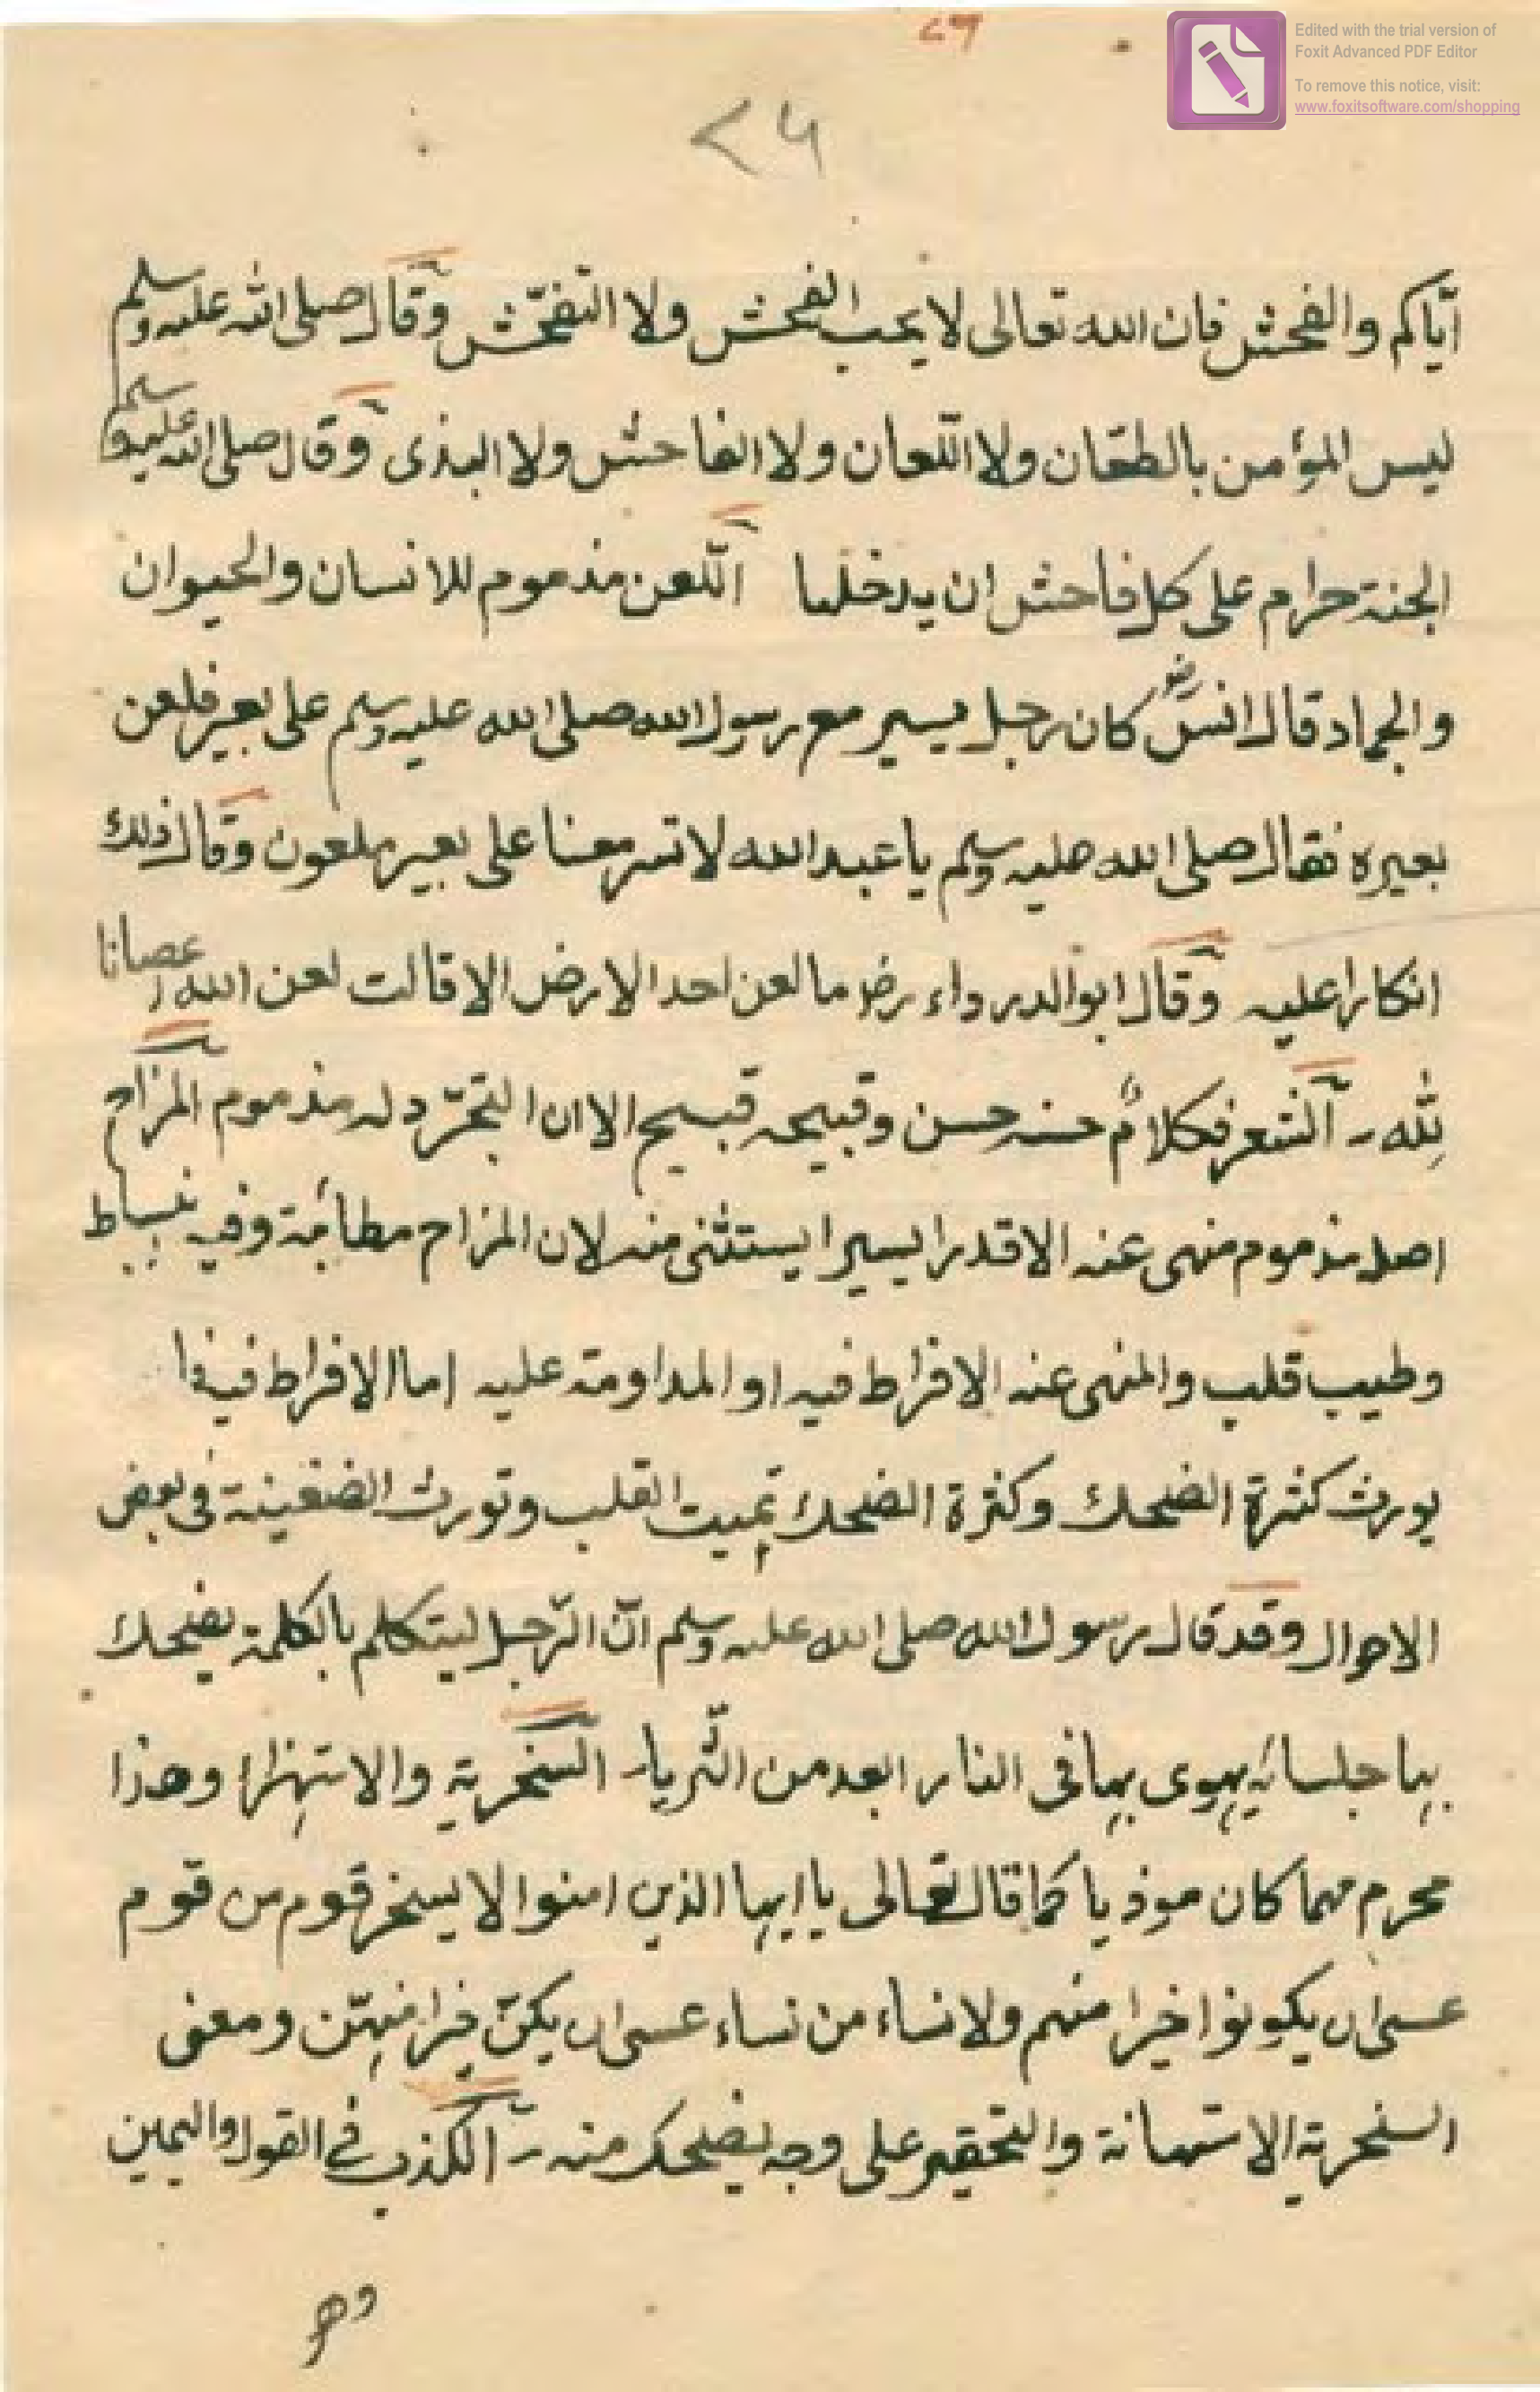 Edited with the trial version of
Foxit Advanced PDF Editor
To remove this notice, visit:
www.foxitsoftware.com/shopping
ايّاكم والفحش فان الله تعالى لا يحب الفحش ولا التفحّش وقال صلى الله عليه وسلم
ليس المؤمن بالطعّان ولا اللّعان ولا الفاحش ولا البذى وقال صلى الله عليه وسلم
الجنة حرام على كل فاحش ان يدخلها اللّعن مذموم للانسان والحيوان
والجماد قال انس رض كان رجل يسير مع رسول الله صلى الله عليه وسلم على بعير فلعن
بعيره فقال صلى الله عليه وسلم يا عبد الله لا تسر معنا على بعير ملعون وقال ذلك
انكارا عليه وقال ابو الدرداء رض ما لعن احد الارض الا قالت لعن الله اعصانا
لله الشعر فكلامٌ حسنه حسن وقبيحه قبيح الا ان التجرّد له مذموم المزاح
اصله مذموم منهى عنه الا قدرا يسيرا يستثنى منه لان المزاح مطائبة وفيه نبساط
وطيب قلب والمنهى عنه الافراط فيه او المداومة عليه اما الافراط فيه فا
يورث كثرة الضحك وكثرة الضحك تميت القلب وتورث الضغينة فى بعض
الاحوال وقد قال رسول الله صلى الله عليه وسلم انّ الرّجل ليتكلم بالكلمة يضحك
بها جلسائه يهوى بها فى النار ابعد من الثّريا السخرية والاستهزا وهذا
محرم مهما كان موذيا كما قال تعالى يا ايها الذين امنوا لا يسخر قوم من قوم
عسى ان يكونوا خيرا منهم ولا نساء من نساء عسى ان يكنّ خيرا منهنّ ومعنى
السخرية الاستهانة والتحقير على وجه يضحك منه الكذب فى القول واليمين
وهو